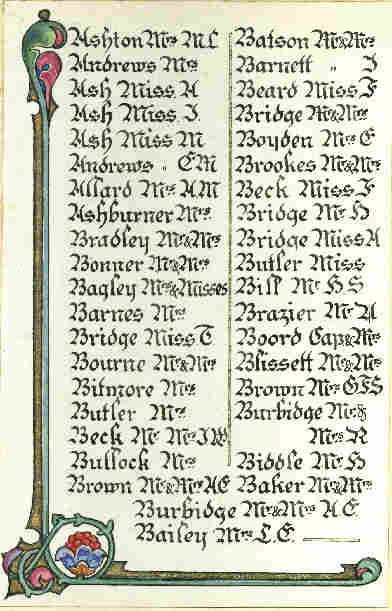 Ashton Mrs M.L
Andrews Mrs
Ash Miss. A
Ash Miss. I.
Ash Miss M
Andrews " E M
Allard Mrs A M
Ashburner Mrs
Bradley Mr & Mrs
Bonner Mr & Mrs
Bagley Mrs & Misses
Barnes Mrs
Bridge Miss T
Bourne Mr & Mrs
Bitmore Mrs
Butler Mrs
Beck Mr Mrs J W
Bullock Mrs
Brown Mr & Mrs A E
Batson Mr & Mrs
Barnett " J
Beard Miss F
Bridge Mr & Mrs
Boyden Mrs E
Brookes Mr & Mrs
Beck Miss F
Bridge Mr H
Bridge Miss A
Butler Miss
Bill Mr H S
Brazier Mr A
Boord Cap & Mrs
Blissett Mr & Mrs
Brown Mrs G F S
Burbidge Mr &
Mrs R
Biddle Mr H
Baker Mr & Mrs
Burbidge Mr & Mrs A.E.
Bailey Mrs L.E.